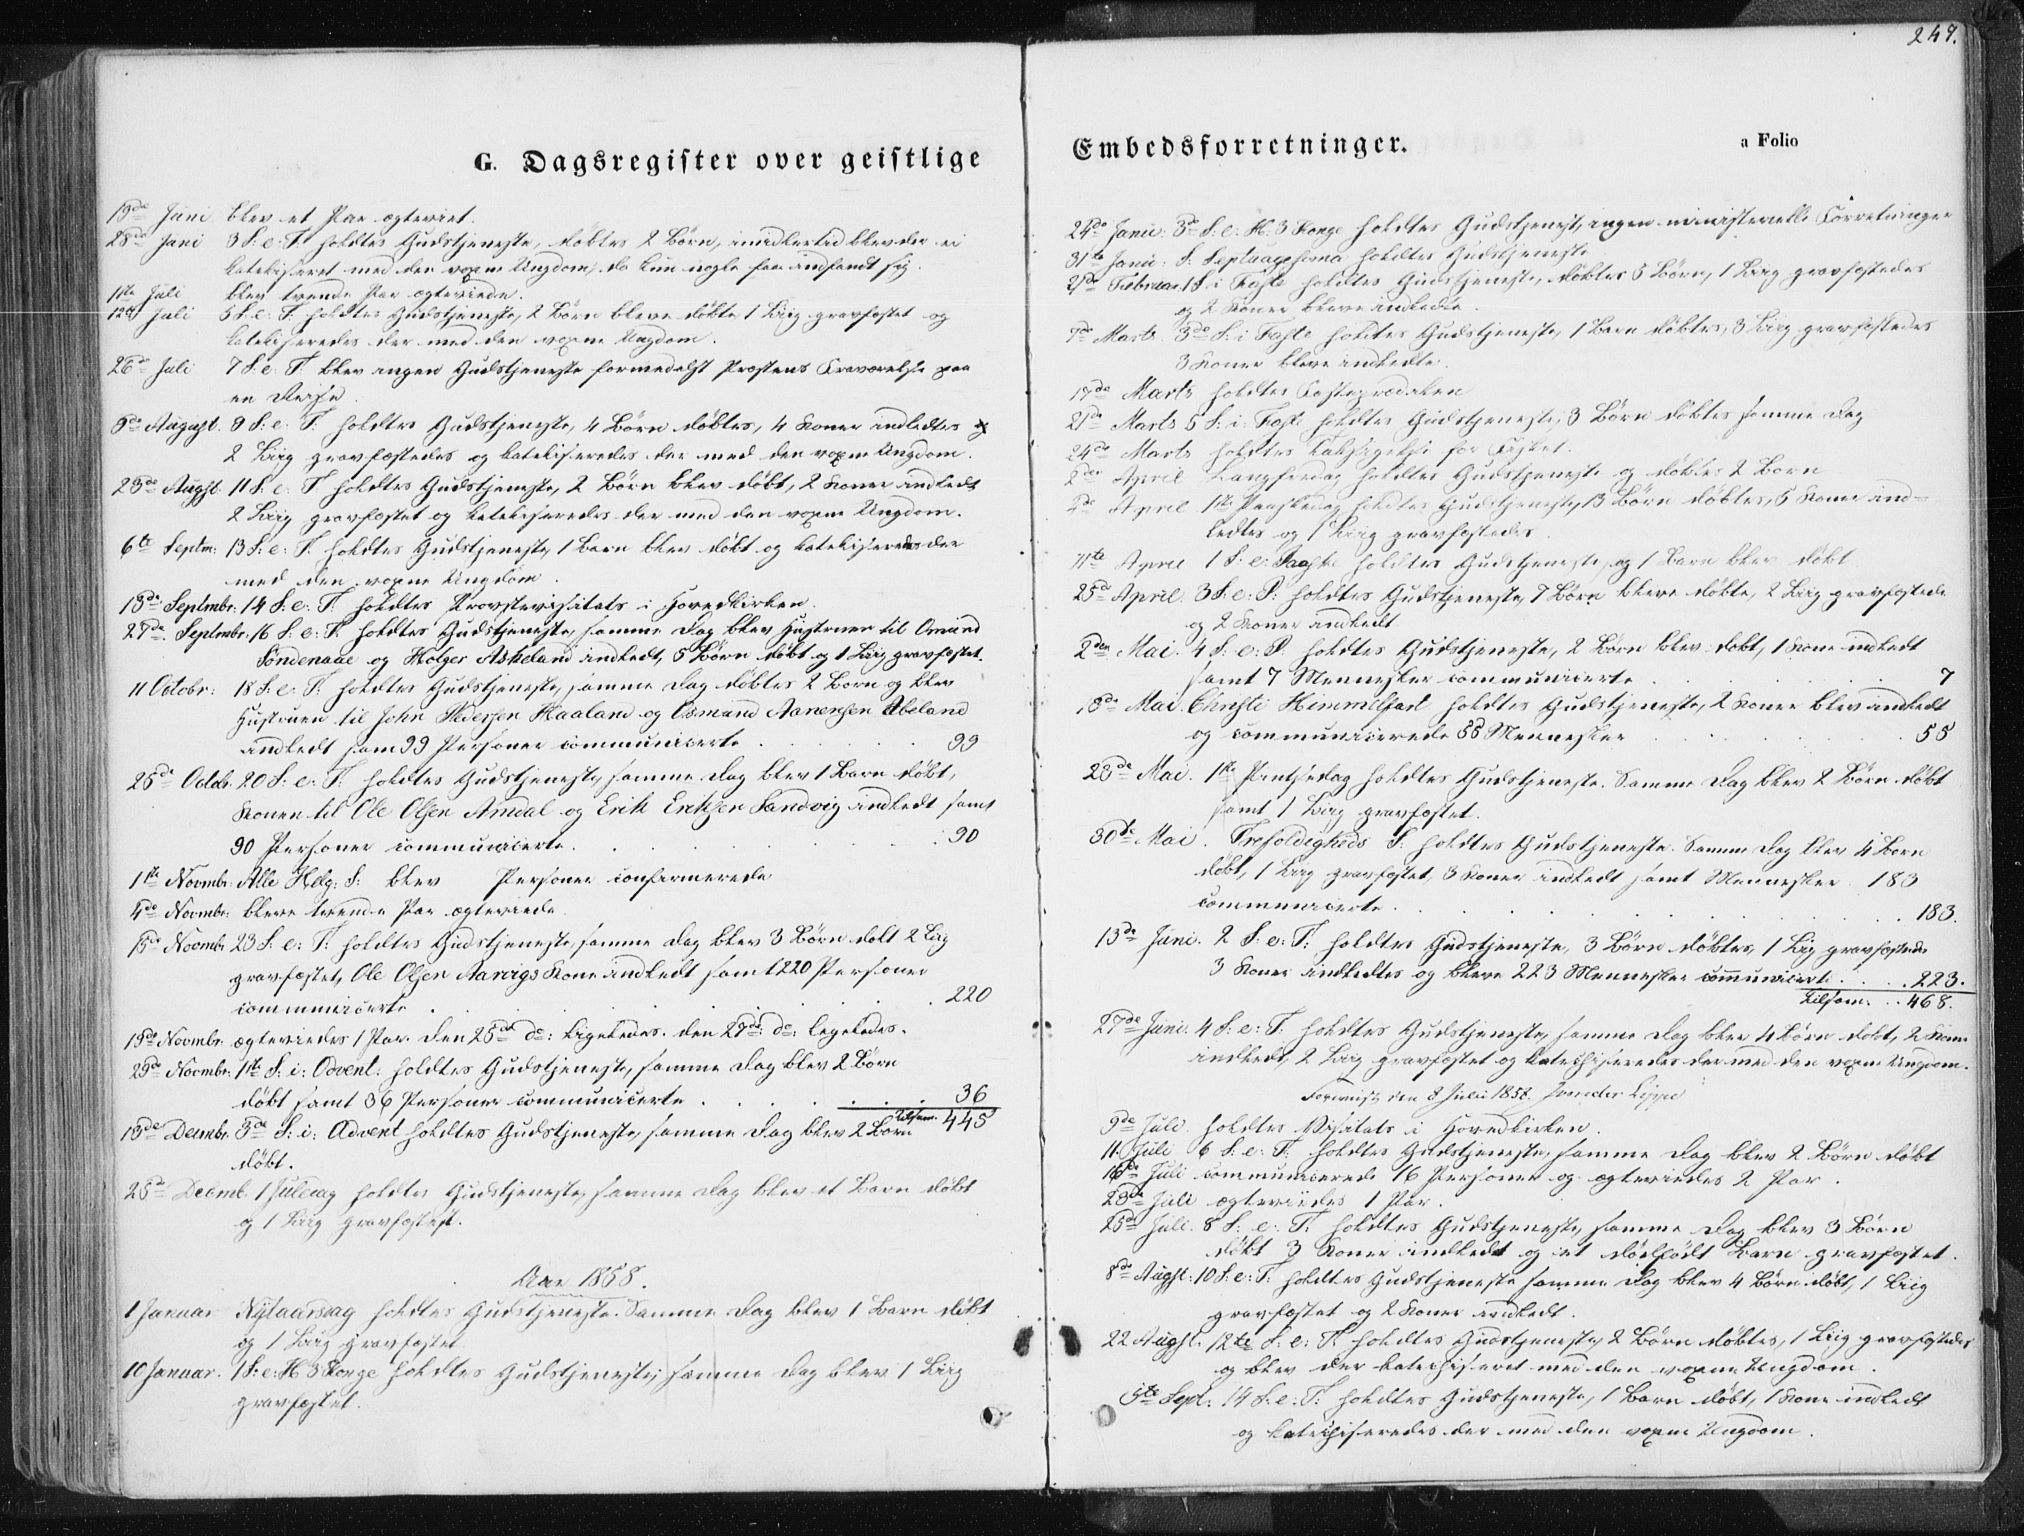 249.
G. Dagsregister over geistlige
Embedsforretninger.
a Folio
19de Juni blev et Par ægteviet.
28de Juni 3 S: e: T: holdtes Gudstjeneste, døbtes 2 Børn, imidlertid blev der ei
katekiseret med den voxne Ungdom, da kun nogle faa indfandt sig.
1ste Juli blev trende Par ægteviede.
12te Juli 5 S. e: T: holdtes Gudstjeneste, 2 Børn bleve døbte 1 Liig gravfæstet og
katekiseredes der med den voxne Ungdom.
26de Juli 7 S: e: T: blev ingen Gudstjeneste formedelst Præstens Fraværelse paa
en Reise.
9de August. 9 S: e: T: holdtes Gudstjeneste, 4 Børn døbtes, 4 Koner indledtes og
2 Liig gravfæstedes og katekiseredes der med den voxne Ungdom.
23de Augst. 11 S: e: T holdtes Gudstjeneste, 2 Børn blev døbt, 2 Koner indledt
2 Liig gravfæstet og katekiseredes der med den voxne Ungdom.
6te Septm: 13 S: e: T. holdtes Gudstjeneste, 1 Barn blev døbt og katekiseredes der
med den voxne Ungdom.
13de Septmbr: 14 S: e: T: holdtes Provstevisitats i Hovedkirken.
27de Septmbr: 16 S: e: T: holdtes Gudstjeneste, samme Dag blev Hustruen til Omund
Søndenaae og Holger Askeland indledt, 5 Børn døbt og 1 Liig gravfæstet.
11 Octobr: 18 S: e: T: holdtes Gudstjeneste, samme Dag døbtes 2 Børn og blev
Hustruen til John Pedersen Haaland og Osmund Aanensen Abeland
indledt samt 99 Personer communicerte . . . . . 99
25de Octobr: 20 S: e: T: holdtes Gudstjeneste, samme Dag blev 1 Barn døbt,
Konen til Ole Olsen Amdal og Erik Eriksen Sandvig indledt samt
90 Personer communicerte. . . . . . . 90
1ste Novmbr: Alle Helg: S: blev Personer confirmerede
4de Novmbr: bleve trende Par ægteviede.
15de Novmbr 23 S: e: T: holdtes Gudstjeneste, samme Dag blev 3 Børn døbt 2 Liig
gravfæstet, Ole Olsen Aarvigs Kone indledt samt 220 Personer
communicerte . . . . . . . 220
19de Novmbr: ægteviedes 1 Par. Den 25de do: ligeledes. den 27de do: ligeledes.
29de Novmbr: 1ste S: i: Advent: holdtes Gudstjeneste, samme Dag blev 2 Børn
døbt samt 36 Personer communicerte . . . . . 36
Tilsam: 445
13de Decmbr: 3de S: i: Advent holdtes Gudstjeneste, samme Dag blev 2 Børn
døbt.
25de Decmb. 1 Juledag holdtes Gudstjeneste, samme Dag blev et Barn døbt
og 1 Liig gravfæstet.
Aar 1858.
1 Januar Nytaarsdag holdtes Gudstjeneste. Samme Dag blev 1 Barn døbt
og 1 Liig gravfæstet
10 Januar. 1 S: e: H 3 Konge holdtes Gudstjeneste; samme Dag blev 1 Liig
gravfæstet.
24de Janu: 3de S: e: H: 3 Konge holdtes Gudstjenest, ingen ministerielle Forretninger
31te Janu: S: Septuagesima holdtes Gudstjeneste
21de Februar 1 S: i Faste holdtes Gudstjeneste, døbtes 5 Børn, 1 Liig gravfæstedes
og 2 Koner bleve indledte.
7de Marts 3de S: i Faste holdtes Gudstjeneste, 1 Barn døbtes, 3 Liig gravfæstedes
3 Koner bleve indledte.
17de Marts holdtes Fasteprædiken
21de Marts 5 S: i: Faste holdtes Gudstjeneste, 3 Børn døbtes samme Dag
24de Marts holdtes Taksigelse for Fisket.
2den April Langfredag holdtes Gudstjeneste og døbtes 2 Børn
4de April 1ste Paaskedag holdtes Gudstjeneste, 13 Børn døbtes, 5 Koner ind-
ledtes og 1 Liig gravfæstedes.
11te April 1 S: e: Paaske holdtes Gudstjeneste, og 1 Barn blev døbt
25de April. 3 S: e: P: holdtes Gudstjeneste, 7 Børn bleve døbte, 2 Liig gravfæstede
og 2 Koner indledt
2den Mai. 4 S: e: P. holdtes Gudstjeneste, 2 Børn blev døbt, 1 Kone indledt
samt 7 Mennesker communicerte . . . . . 7
13de Mai. Christi Himmelfart holdtes Gudstjeneste, 2 Koner blev indledt
og communicerede 55 Mennesker . . . . . 55
23de Mai. 1ste Pintsedag holdtes Gudstjeneste. Samme Dag blev 2 Børn døbt
samt 1 Liig gravfæstet.
30te Mai. Trefoldigheds S: holdtes Gudstjeneste. Samme Dag blev 4 Børn
døbt, 1 Liig gravfæstet, 3 Koner indledt samt Mennesker 183
communicerte . . . . . . . 183.
13de Juni. 2 S: e: T: holdtes Gudstjeneste, 3 Børn døbtes, 1 Liig gravfæstede
3 Koner indledtes og bleve 223 Mennesker communicerte . . . . 223.
Tilsam: . . 468.
27de Juni. 4 S: e: T: holdtes Gudstjeneste, samme Dag blev 4 Børn døbt, 2 Koner
indledt, 2 Liig gravfæstet og katechiseredes der med den voxne Ungdom.
den 8 Juli 1858.
9de Juli holdtes Visitats i Hovedkirken.
11. Juli 6 S: e: T: holdtes Gudstjeneste, samme Dag blev 2 Børn døbt
16de Juli communicerede 16 Personer og ægteviedes 2 Par.
23de Juli ægteviedes 1 Par.
25de Juli. 8 S: e: T: holdtes Gudstjeneste, samme Dag blev 3 Børn
døbt 3 Koner indledt og et dødfødt Barn gravfæstet.
8de Augst: 10 S: e: T: holdtes Gudstjeneste samme Dag blev 4 Børn døbt, 1 Liig
gravfæstet og 2 Koner indledt.
22 Augst. 12te S: e: T: holdtes Gudstjeneste, 2 Børn døbtes, 1 Liig gravfæstedes
og blev der katechiseret med den voxne Ungdom.
5te Sept: 14 S: e: T: holdtes Gudstjeneste, 1 Barn døbt, 1 Kone indledt
og katechiseredes der med den voxne Ungdom.